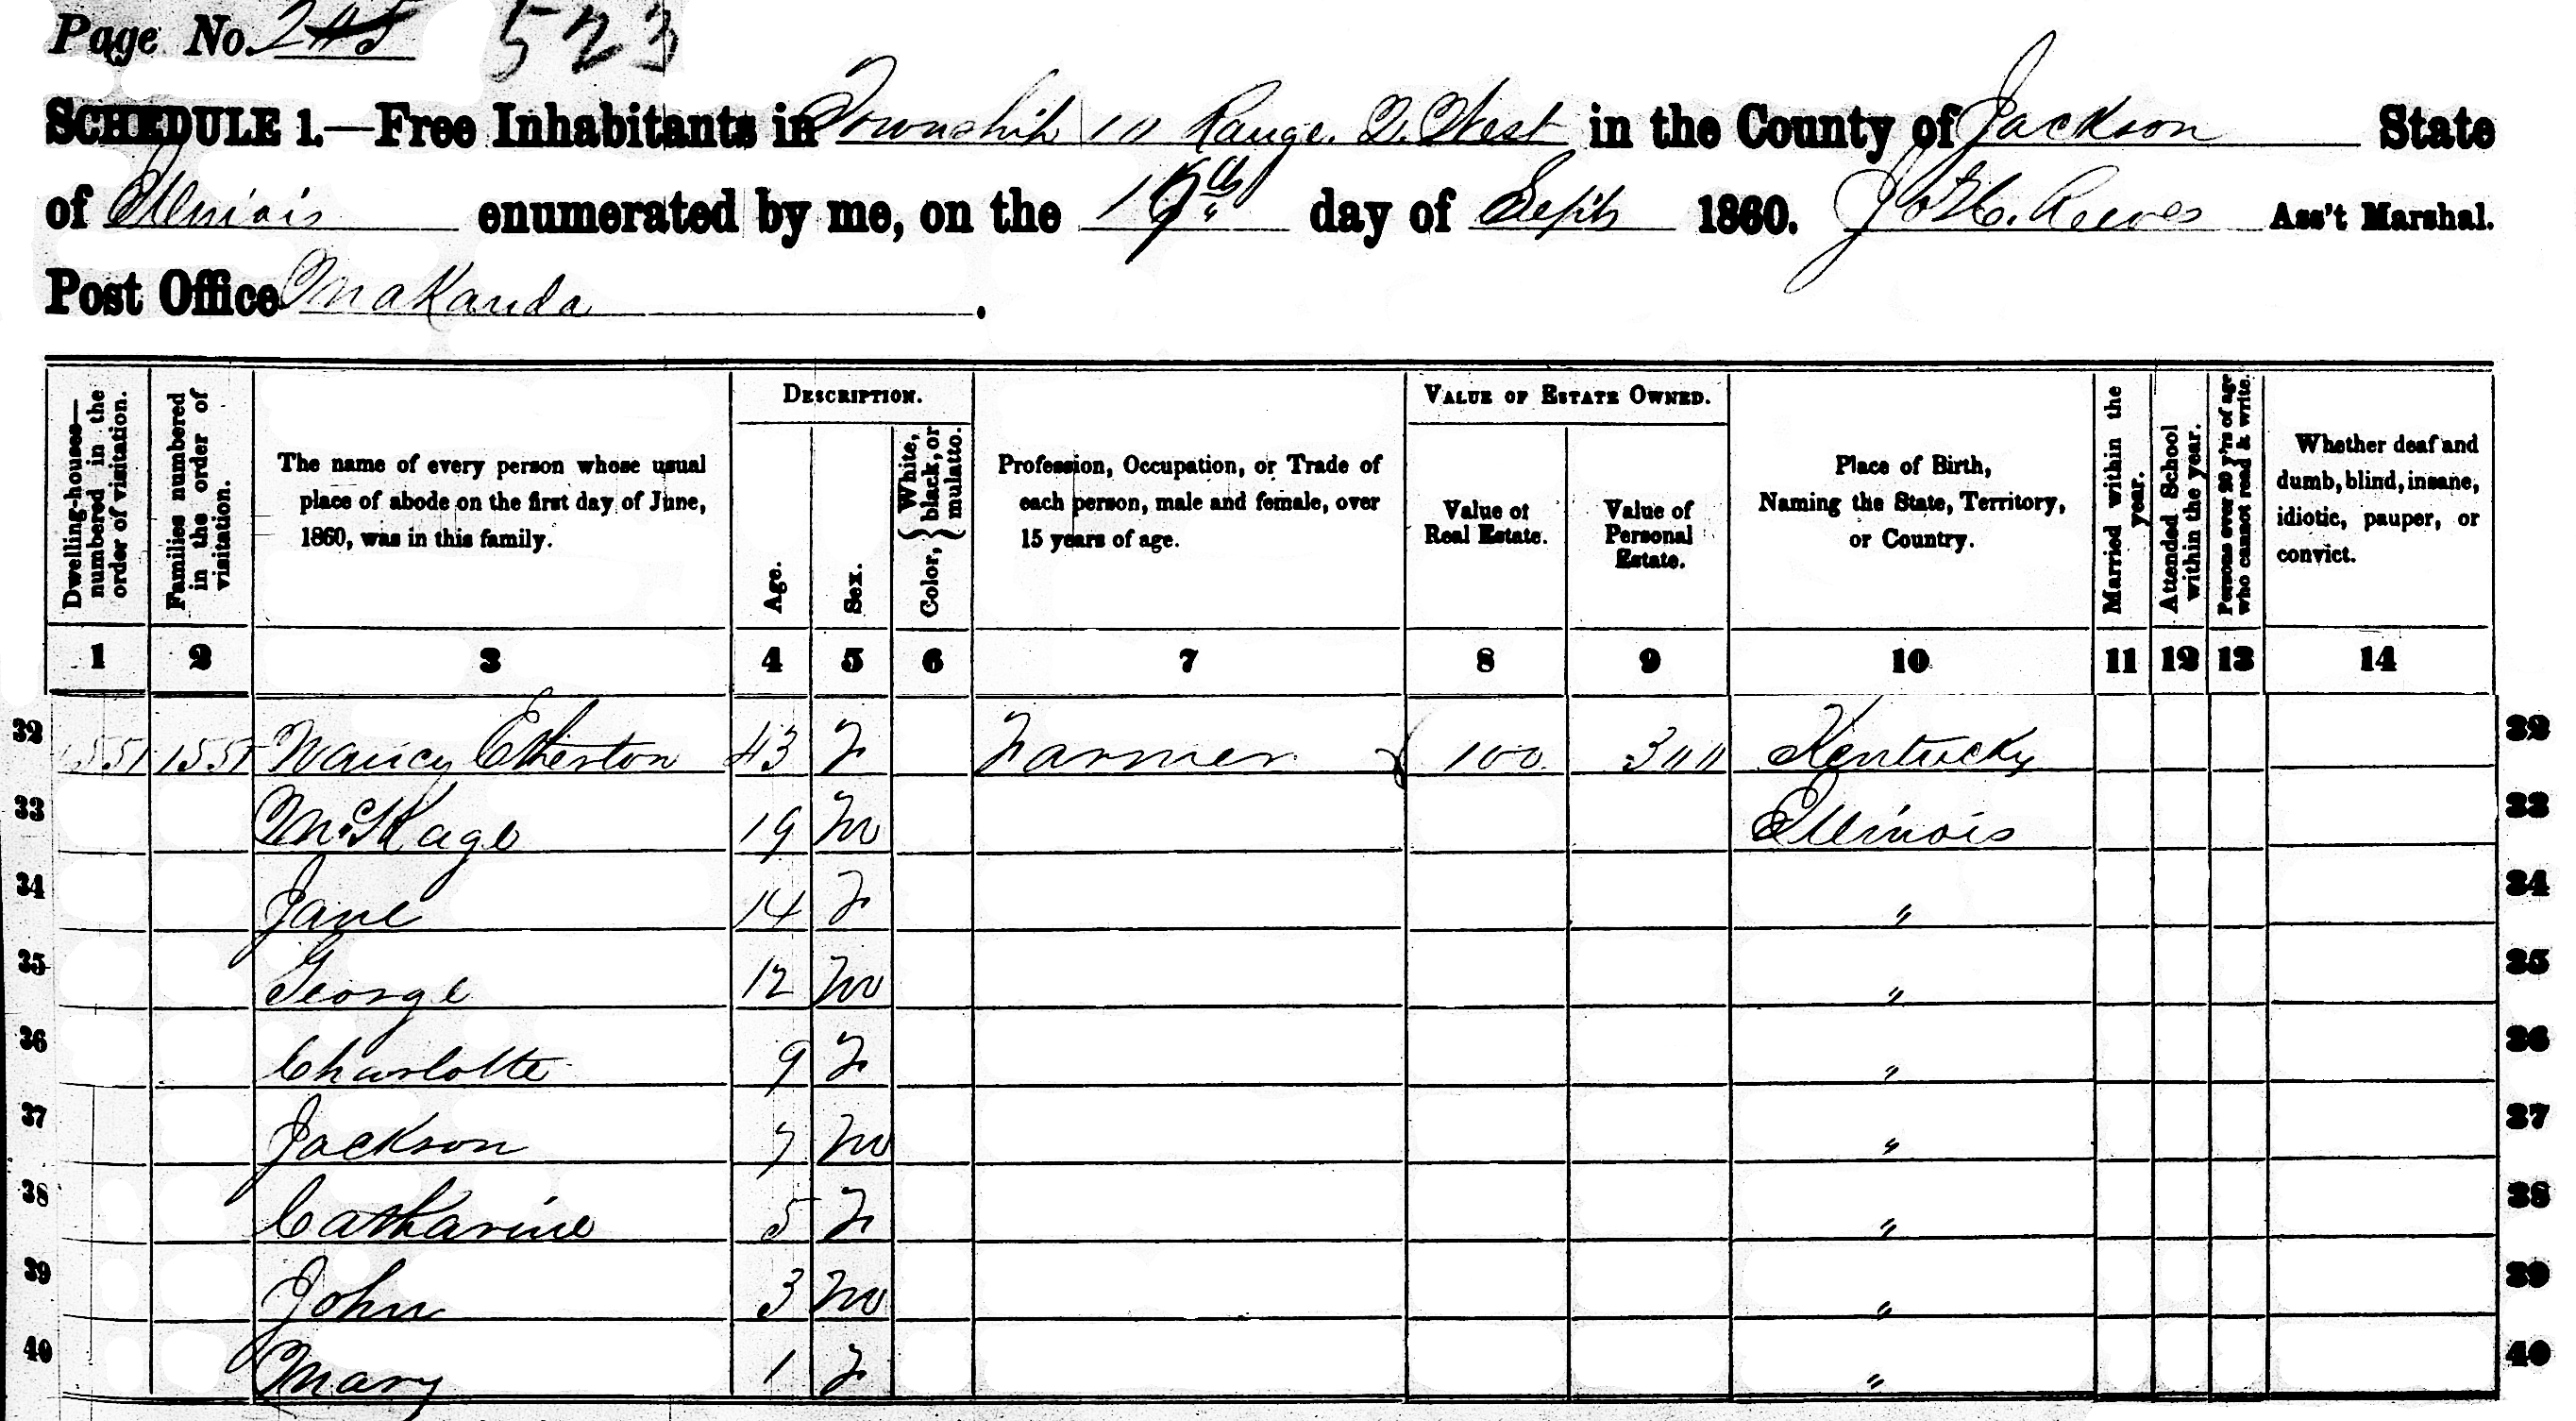 Page No. 245 523
SCHEDULE 1.—Free Inhabitants in Township 10 Range 2. West in the County of Jackson State
of Illinois enumerated by me, on the 19th day of Sept 1860. Reeves Ass't Marshal.
Post Office Makanda .
Dwelling-houses—numbered in the order of visitation.
Families numbered in the order of visitation.
The name of every person whose usual
place of abode on the first day of June,
1860, was in this family.
DESCRIPTION.
Age.
Sex.
Color, { White, black, or mulatto. }
Profession, Occupation, or Trade of
each person, male and female, over
15 years of age.
VALUE OF ESTATE OWNED.
Value of
Real Estate.
Value of
Personal
Estate.
Place of Birth,
Naming the State, Territory,
or Country.
Married within the year.
Attended School within the year.
Persons over 20 y'rs of age who cannot read & write.
Whether deaf and
dumb, blind, insane,
idiotic, pauper, or
convict.
1 2 3 4 5 6 7 8 9 10 11 12 13 14
32 1551 1551 Nancy Etherton 43 F Farmer 100 300 Kentucky 32
33 McKage 19 M Illinois 33
34 Jane 14 F " 34
35 George 12 M " 35
36 Charlotte 9 F " 36
37 Jackson 7 M " 37
38 Catharine 5 F " 38
39 John 3 M " 39
40 Mary 1 F " 40